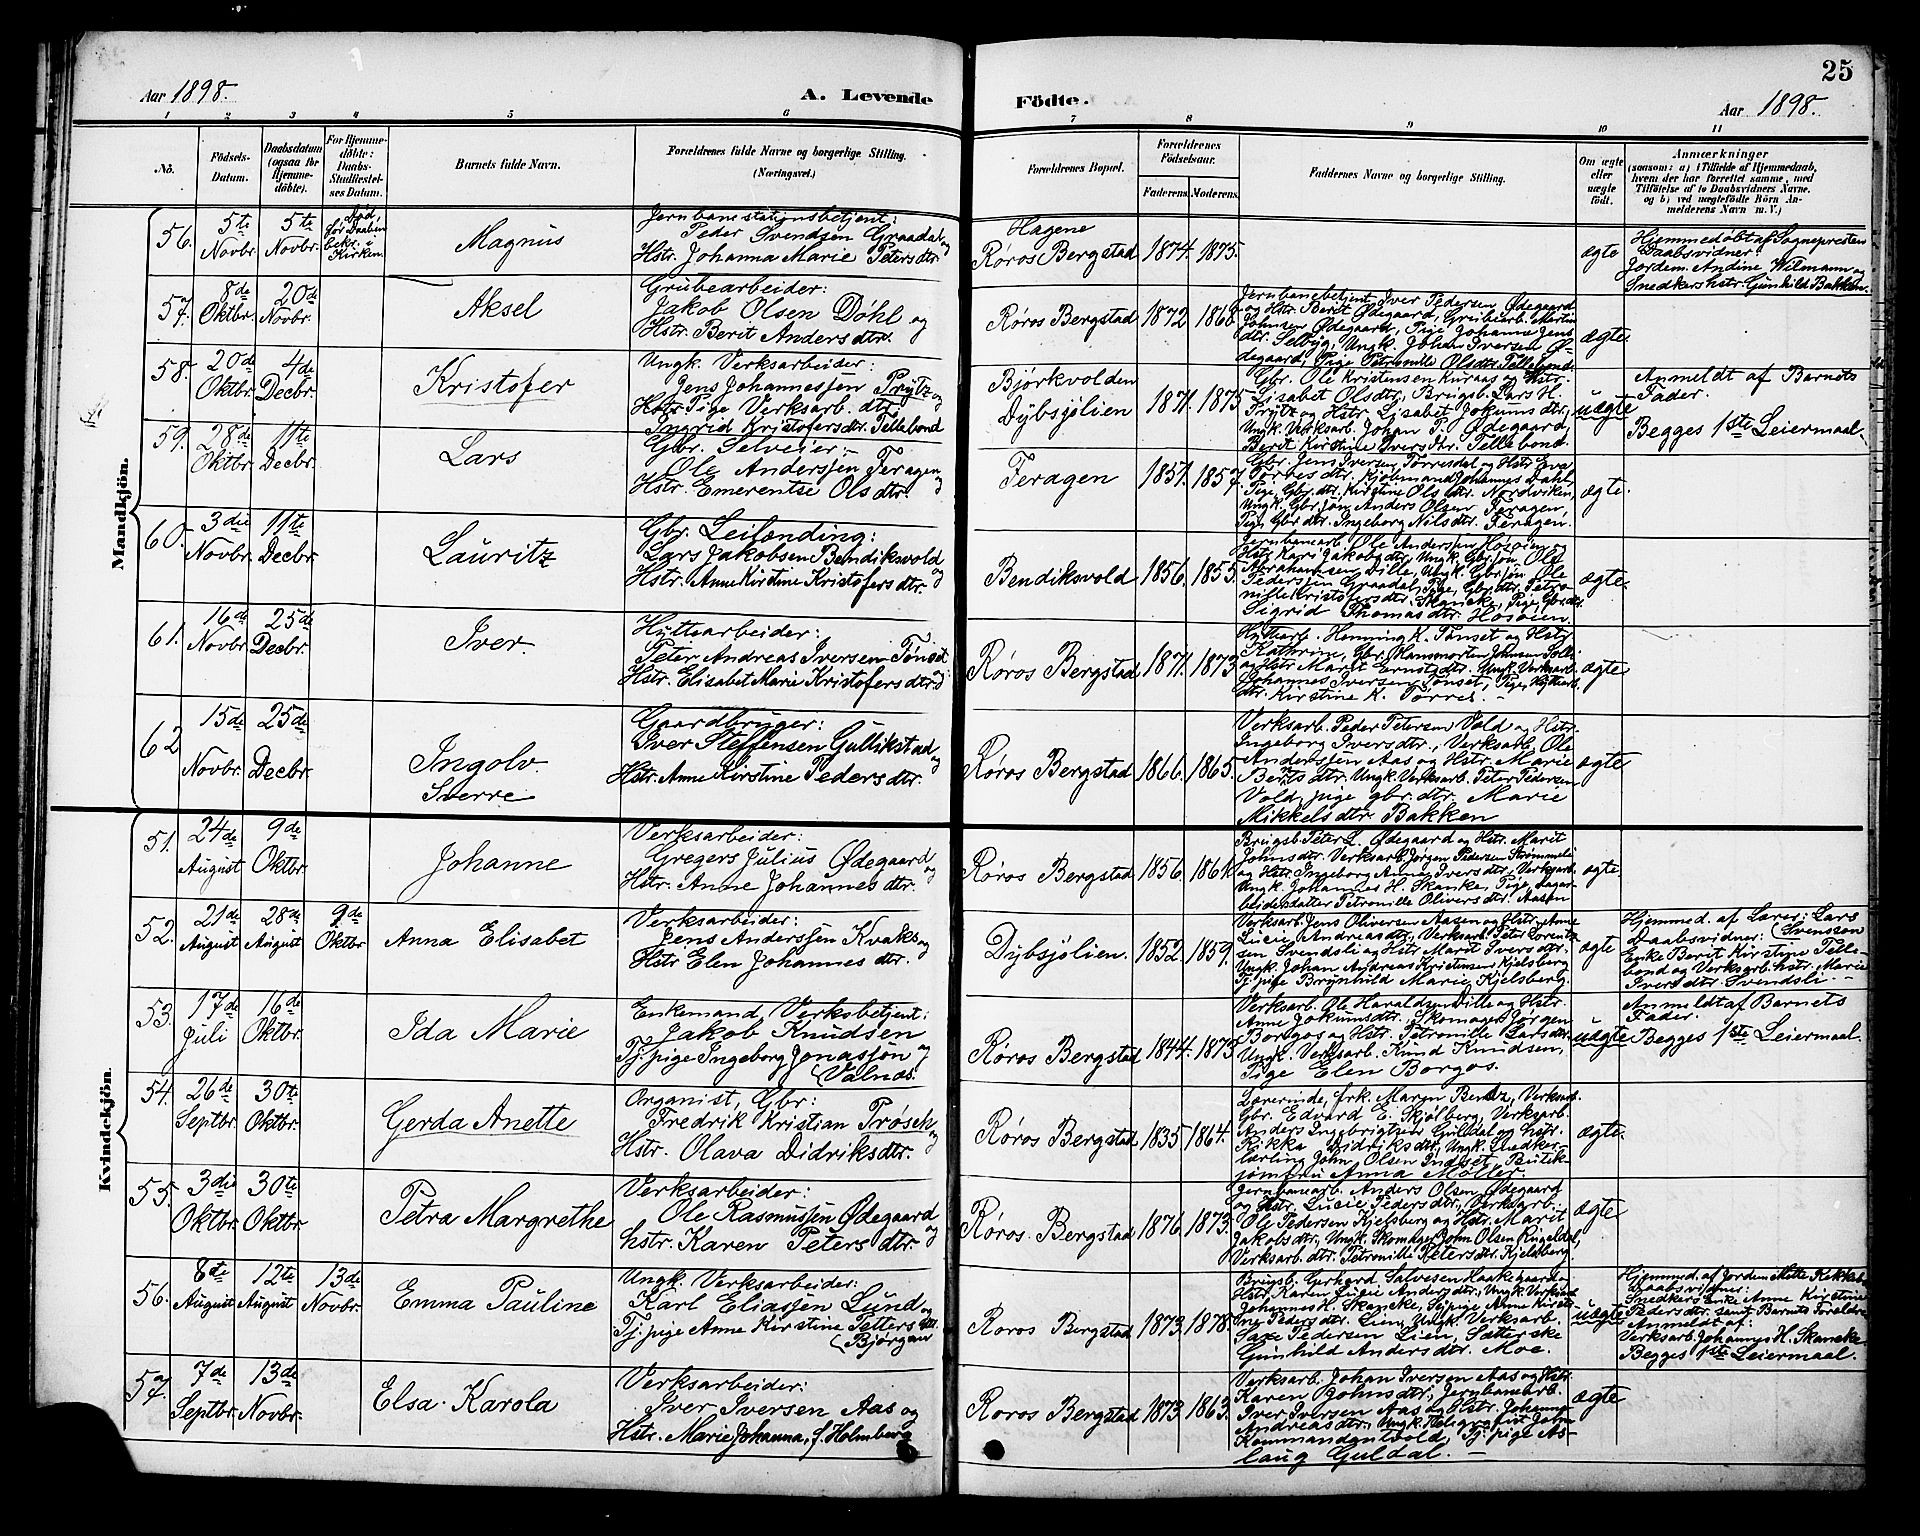 25
Aar 1898.
A. Levende
Födte.
Aar 1898.
1 2 3 4 5 6 7 8 9 10 11
No.
Födsels-
Datum.
Daabsdatum
(ogsaa for
Hjemme-
döbte).
For Hjemme-
döbte:
Daabs-
Stadfæstel-
ses Datum.
Barnets fulde Navn.
Forældrenes fulde Navne og borgerlige Stilling.
(Næringsvei.)
Forældrenes Bopæl.
Forældrenes
Födselsaar.
Faderens. Moderens.
Faddernes Navne og borgerlige Stilling.
Om ægte
eller
uægte
födt.
Anmærkninger
(saasom: a) i Tilfælde af Hjemmedaab,
hvem der har forrettet samme, med
Tilföielse af to Daabsvidners Navne,
og b) ved uægtefödte Börn An-
melderens Navn m. V.)
Mandkjön.
56.
5te
Novbr.
5te
Novbr.
Død
før Daaben
bekr. i
Kirken.
Magnus
Jernbanestationsbetjent:
Peder Svendsen Graadal og
Hstr. Johanna Marie Petersdtr.
Hagene
Røros Bergstad
1874.
1875.
ægte
Hjemmedøbt af Sognepresten
Daabsvidner:
Jordem. Andine Wilmann og
Snedkershstr. Gunhild Bakken.
57.
8de
Oktbr.
20de
Novbr.
Aksel
Grubearbeider:
Jakob Olsen Døhl og
Hstr. Berit Andersdtr.
Røros Bergstad
1872
1868
Jernbanebetjent Iver Pedersen Ødegaard
og Hstr. Berit Ødegaard, Grubearb. Martin
Johnsen Ødegaard, Pige Johanna Jens
dtr. Selbyg, Ungk. Johan Iversen Ø-
degaard, Pige Petromille Olsdtr. Tellebond.
ægte.
58.
20de
Oktbr.
4de
Decbr.
Kristofer
Ungk. Verksarbeider:
Jens Johannessen Prytz og
Hstr. Pige Verksarb. dtr.
Ingrid Kristofersdtr. Tellebond
Bjørkvolden
Dybsjølien
1871.
1875
Gbr. Ole Kristensen Kuraas og Hstr.
Lisabet Olsdtr., Brugsb. Lars H.
Prytz og Hstr. Lisabet Jokumsdtr.,
Ungk. Verksarb. Johan P. Ødegaard,
Berit Kirstine Iversdtr. Tellebond.
uægte
Anmeldt af Barnets
Fader.
Begges 1ste Leiermaal.
59.
28de
Oktbr.
11te
Decbr.
Lars
Gbr. Selveier:
Ole Anderssen Feragen og
Hstr. Emerentse Olsdtr.
Feragen
1851.
1857.
Gbr. Jens Iversen Torresdal og Hstr. Eva
Torresdtr. Kjøbmand Johannes Dahl,
Pige, Gbr. dtr. Kirstine Olsdtr. Nordviken,
Ungk. Gbr. søn Anders Olsen Feragen,
Pige, Gbr. dtr. Ingeborg Nilsdtr. Feragen.
ægte.
60.
3die
Novbr.
11te
Decbr.
Lauritz
Gbr. Leilending:
Lars Jakobsen Bendiksvold og
Hstr. Anne Kirstine Kristofersdtr.
Bendiksvold
1856.
1855.
Jernbanearb. Ole Andersen Hosøien og
Hstr. Kari Jakobsdtr., Ungk. Gbr. søn Ole
Abrahamsen Dille, Ungk. Gbr. søn Ole
Pederssen Graadal, Pige, Gbr. dtr. Petro-
nille Kristofersdtr. Skancke, Pige, Gbr. dtr.
Sigrid Thomasdtr. Hosøien.
ægte.
61.
16de
Novbr.
25de
Decbr.
Iver.
Hyttearbeider:
Peter Andreas Iversen Tønset og
Hstr. Elisabet Marie Kristofersdtr.
Røros Bergstad
1871.
1873.
Hyttearb. Henning K. Tønset og Hstr.
Kathrine, Gbr. Hansmorten Johnsen Solli
og Hstr. Marit Ernstsdtr. Ungk. Verksarb.
Johannes Iversen Tønset, Pige, Hyttearb.
dtr. Kirstine K. Torres.
ægte
62
15de
Novbr.
25de
Decbr.
Ingolv
Sverre
Gaardbruger:
Iver Steffensen Gullikstad og
Hstr. Anne Kirstine Pedersdtr.
Røros Bergstad
1866.
1865.
Verksarb. Peder Petersen Vold og Hstr.
Ingeborg Iversdtr., Verksarb. Ole
Anderssen Aas og Hstr. Marie
Berntsdtr. Ungk. Verksarb. Peter Pedersen
Vold, pige gbr. dtr. Marie
Mikkelsdtr Bakken
ægte
Kvindekjön.
51.
24de
August
9de
Oktbr.
Johanne
Verksarbeider:
Gregers Julius Ødegaard og
Hstr. Anne Johannesdtr.
Røros Bergstad
1856.
1861.
Brugsb. Peter L. Ødegaard og Hstr. Marit
Johnsdtr. Verksarb. Jørgen Pedersen Strømmeli
og Hstr. Ingeborg Anna Iversdtr., Verksarb.
Ungk. Johannes H. Skanke, Pige, dagar-
beidersdatter Petronille Oliversdtr. Aasen
ægte.
52.
21de
August
28de
August
9de
Oktbr
Anna Elisabet
Verksarbeider:
Jens Anderssen Kvaks og
Hstr Elen Johannesdtr.
Dybsjølien.
1852.
1859.
Verksarb. Jens Oliversen Aasen og Hstr. Anne
Lucie Andreasdtr., Verksarb. Peter Lorentz-
sen Svendsli og Hstr. Marit Iversdtr.
Ungk. Johan Andreas Kristensen Kjelsberg,
Tj. pige Brynhild Marie Kjelsberg.
ægte
Hjemmed. af Lærer: Lars
Daabsvidner: (Svensson
Enke Berit Kirstine Telle-
bond og Verksarb. hstr. Marie
Iversdtr. Svendsli
53.
17de
Juli
16de
Oktbr.
Ida Marie
Enkemand, Verksbetjent:
Jakob Knudsen og
Tj. pige Ingeborg Jonassøn
(Valnæs.
Røros Bergstad
1844.
1873.
Verksarb. Ole Haraldsen Dille og Hstr.
Anne Jokumsdtr., Skomager Jørgen
Borsgos og Hstr. Petronille Larsdtr.
Ungk. Verksarb. Knud Knudsen,
Pige Elen Borgos.
uægte
Anmeldt af Barnets
Fader.
Begges 1ste Leiermaal.
54.
26de
Septbr.
30te
Oktbr.
Gerda Anette
Organist, Gbr:
Fredrik Kristian Prøsch og
Hstr. Olava Didriksdtr.
Røros Bergstad
1835
1864.
Lærerinde, frk. Maren Bentz, Verksarb.
Gbr. Edvard E. Skjølberg, Verksarb.
Anders Ingebrigtsen Guldal og hstr.
Rikka Didriksdtr., Ungk. Snedker-
lærling John Olsen Indset, Butik-
jomfru Anna Møller.
ægte.
55.
3die
Oktbr.
30te
Oktbr.
Petra Margrethe
Verksarbeider:
Ole Rasmussen Ødegaard og
hstr. Karen Petersdtr.
Røros. Bergstad
1876.
1873.
Jernbanearb. Anders Olsen Ødegaard
og Hstr. Lucie Pedersdtr., Verksarb.
Ole Pedersen Kjelsberg og Hstr. Marit
Jakobsdtr., Ungk. Skomager John Olsen Rugeldal,
Verksarb. dtr. Petronille Petersdtr. Kjelsberg.
ægte
56.
8de
August
12te
August
13de
Novbr.
Emma Pauline
Ungk. Verksarbeider:
Karl Eliassen Lund og
Tj. pige Anne Kirstine Pettersdtr.
(Bjørgan
Røros Bergstad
1873.
1878.
Brugsb. Gerhard Salvesen Haakegaard og
Hstr. Karen Lucie Andersdtr., Ungk. Verksarb.
Johannes H. Skancke, Tj. pige Anne Kirsti-
ne Pedersdtr. Lien, Ungk. Verksarb.
Saxe Pedersen Lien, Sæterske
Gunhild Andersdtr. Moe.
uægte
Hjemmed. af Jordem. Mette Kokksb
Daabsvidner:
Snedkers Enke Anne Kirstine
Pedersdtr. samt Barnets Forældre
Anmeldt af:
Verksarb. Johannes H. Skancke
Begges 1ste Leiermaal.
57.
7de
Septbr.
13de
Novbr.
Elsa. Karola
Verksarbeider:
Iver Iversen Aas og
Hstr. Marie Johanna, f. Holmberg
Røros Bergstad
1873.
1863.
Verksarb. Johan Iversen Aas og Hstr.
Karen Johnsdtr., Jernbanearb.
Iver Iversen Aas og Hstr. Johanna
Andreasdtr., Ungk. Telegrafist John
Kommandantvold, Tj. pige As-
laug Guldal.
ægte